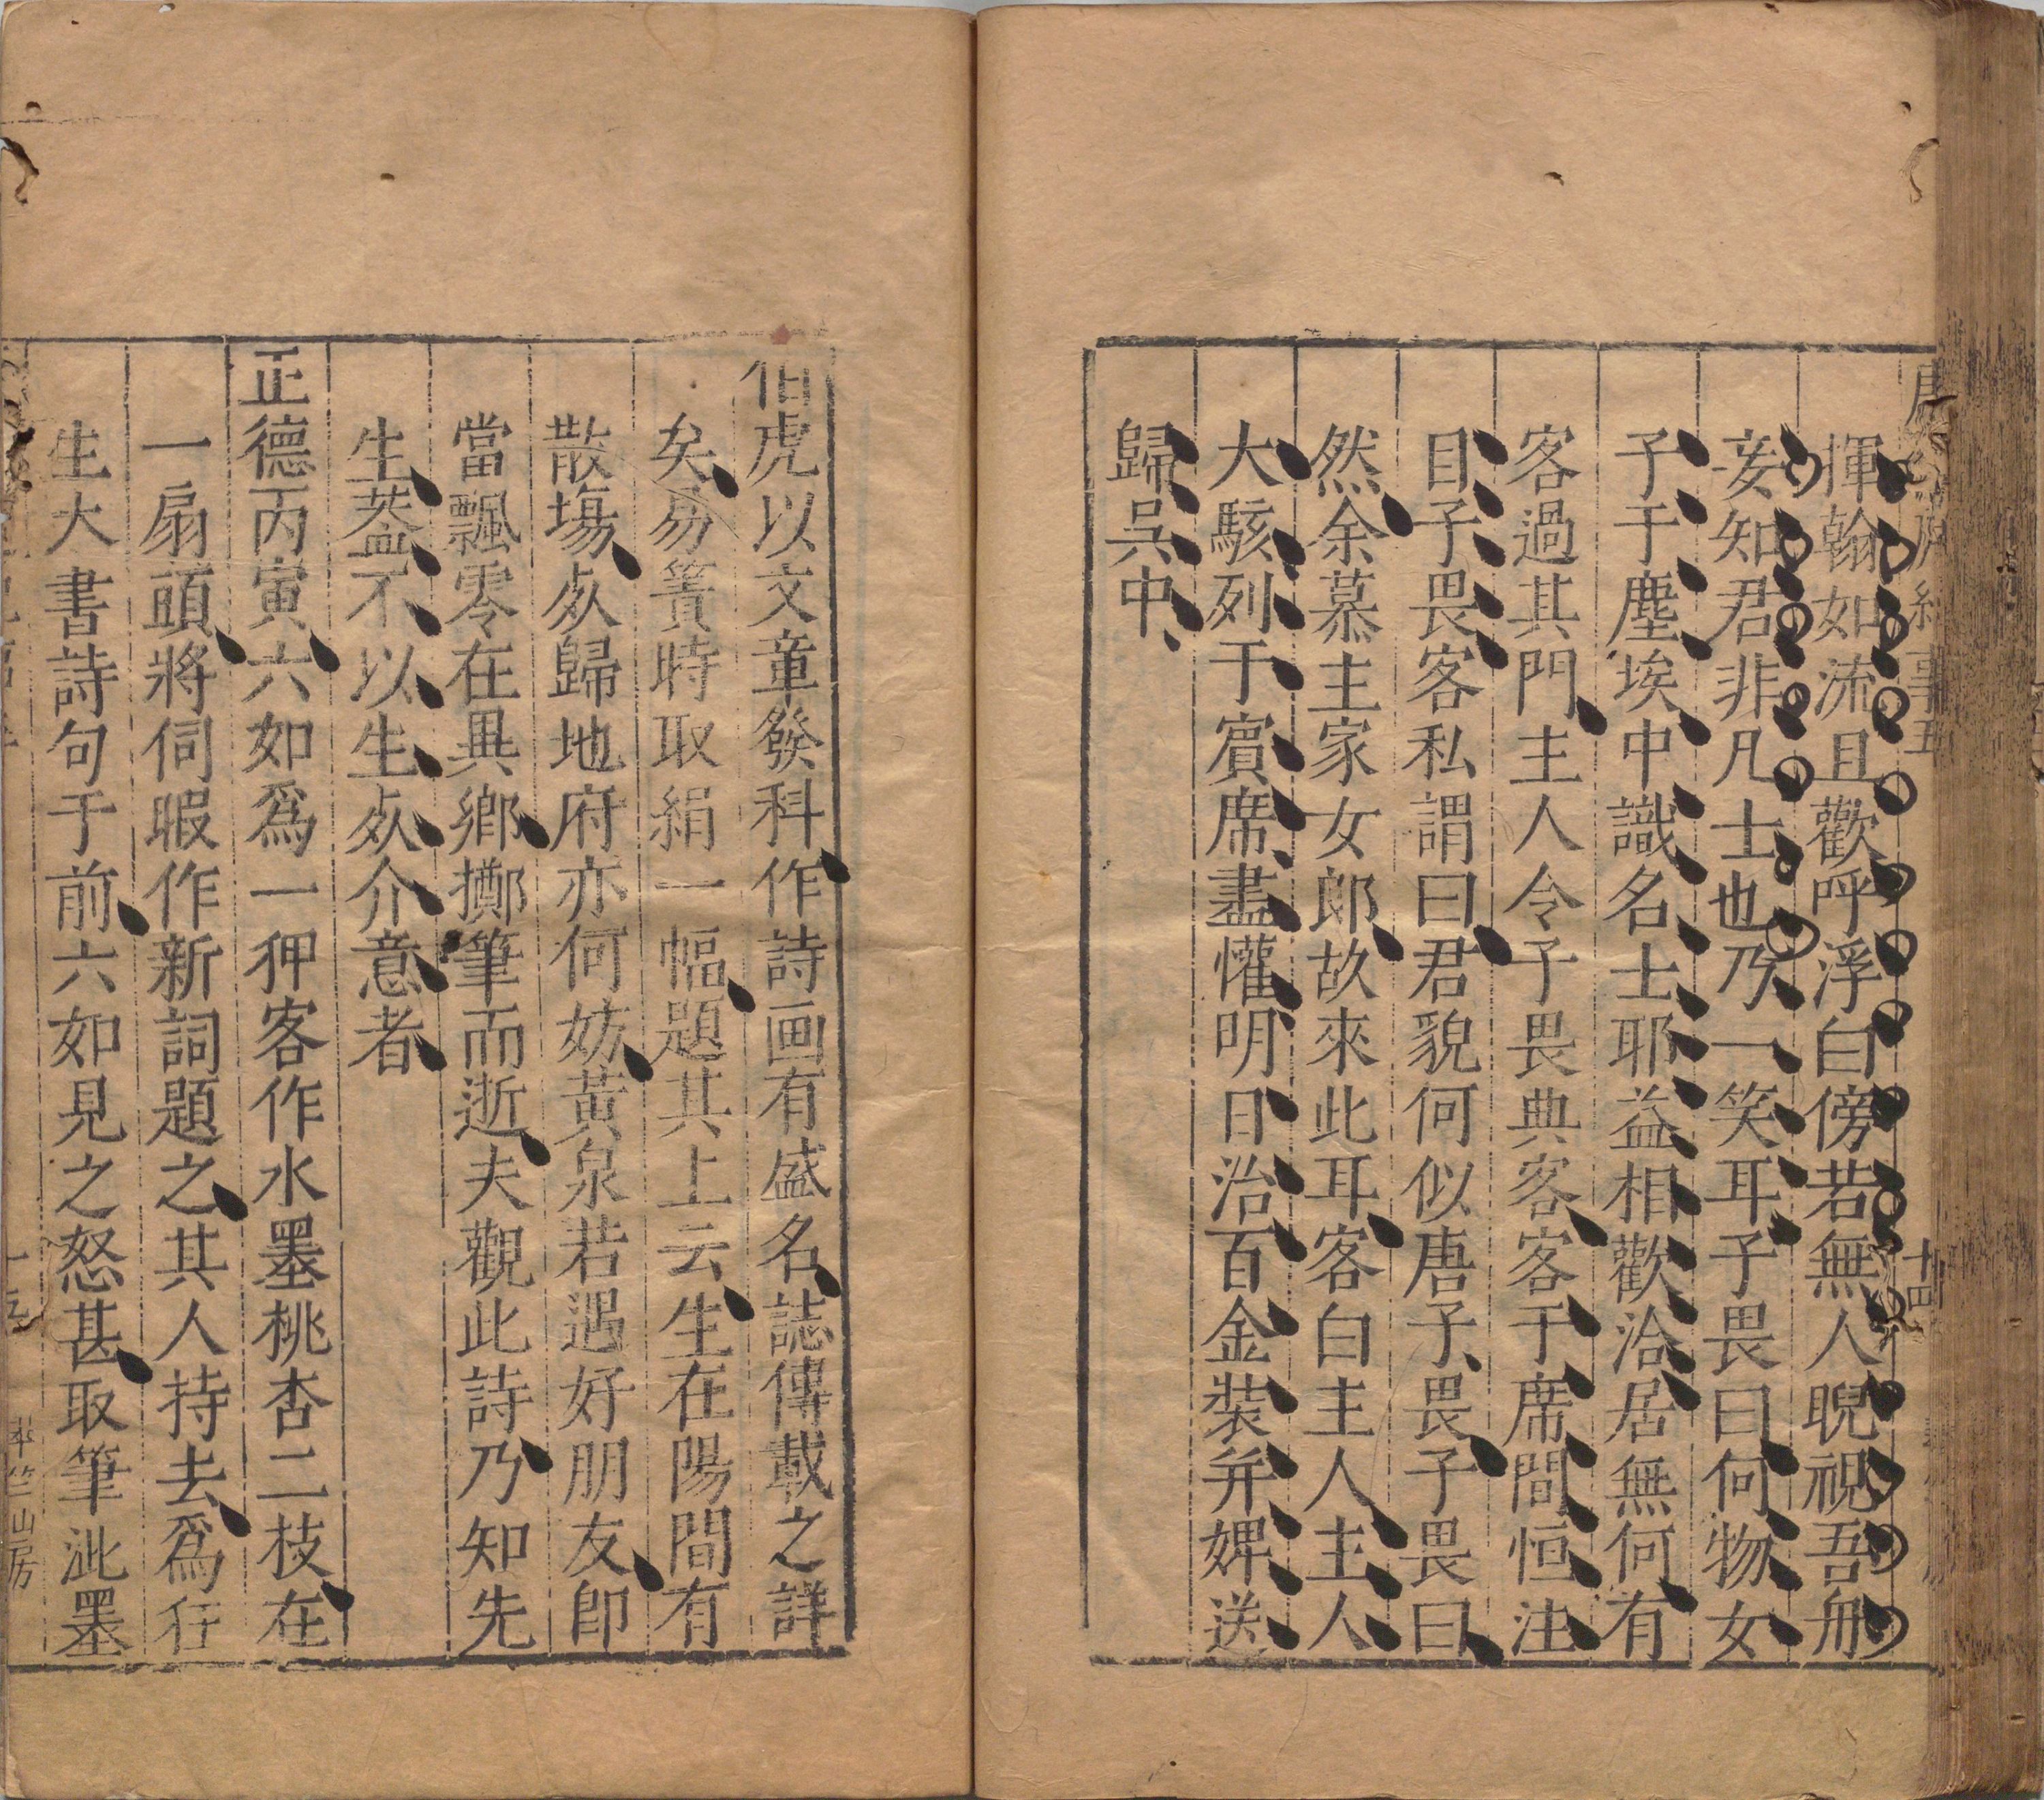 揮翰如流且歡呼浮白傍若無人睨視吾舟
妾知君非凡士也乃一笑耳子畏曰何物女
子于塵埃中識名士耶益相歡洽居無何有
客過其門主人令子畏典客客于席間恒注
目子畏客私謂曰君貌何似唐子畏子畏曰
然余慕主家女郎故來此耳客白主人主人
大駭列于賔席盡懽明日治百金裝并婢送
歸吳中
伯虎以文章發科作詩画有盛名誌傳載之詳
矣昜簀時取絹一幅題其上云生在陽間有
散塲䊩歸地府亦何妨黃泉若遇好朋友即
當飄零在異鄉擲筆而逝夫觀此詩乃知先
生葢不以生䊩介意者
正德丙寅六如爲一狎客作水墨桃杏二枝在
一扇頭將伺暇作新詞題之其人持去爲狂
生大書詩句于前六如見之怒甚取筆泚墨
十五